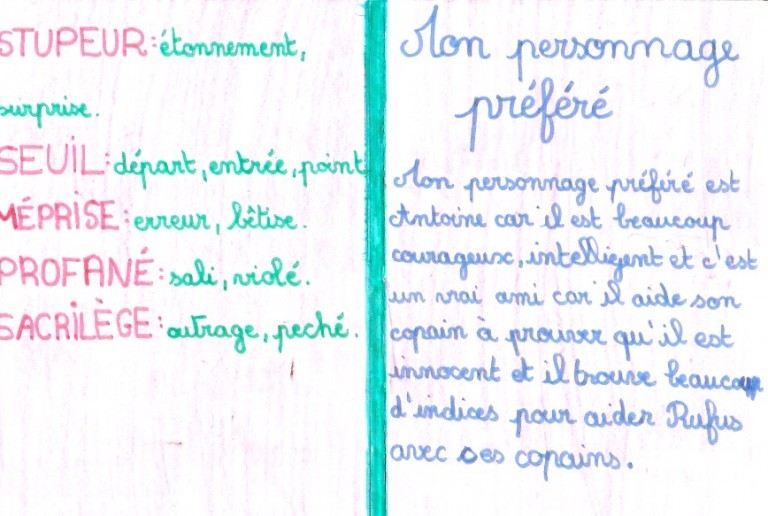 STUPEUR : étonnement,
surprise.
SEUIL : départ, entrée, point
MÉPRISE : erreur, bêtise.
PROFANÉ : sali, violé.
SACRILÈGE : outrage, peché.
Mon personnage
préféré
Mon personnage préféré est
Antoine car il est beaucoup
courageux, intelligent et c'est
un vrai ami car il aide son
copain à prouver qu'il est
innocent et il trouve beaucoup
d'indices pour aider Rufus
avec ses copains.